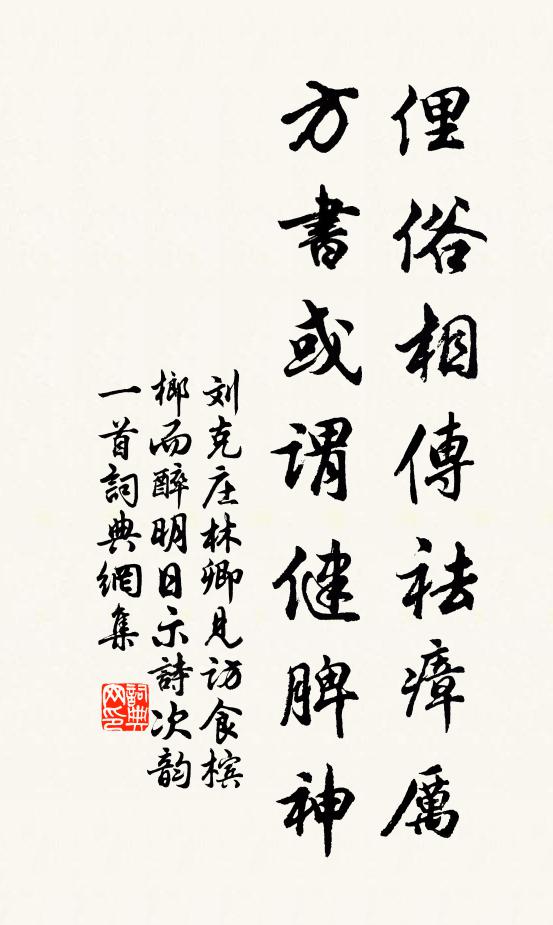 俚俗相傳祛瘴厲
方書或謂健脾神
刘克庄林卿見访食槟
榔而醉明日示詩次韵
一首詞典網集
詞典
网印